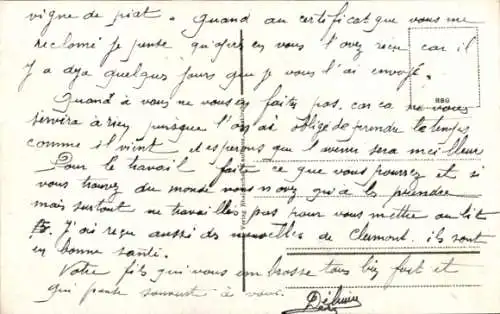 vigne de piat. Quand au certificat que vous me
reclamé je pense qu'apres en vous l'avez reçu car il
y a deja quelques jours que je vous l'ai envoyé.
Quand à vous ne vous en faites pas car ca ne vous
servira à rien puisque l'on ai obligé de prendre le temps
comme il vient et esperons que l'avenir sera meilleur
Pour le travail fait ce que vous pourrez et si
vous trouvez du monde vous n'avez qu'à les prendre
mais surtout ne travaillés pas pour vous mettre au lit
J'ai reçu aussi des nouvelles de Clermont. ils sont
en bonne santé.
Votre fils qui vous embrasse tous bien fort et
qui pense souvent à vous.
889
Verlag